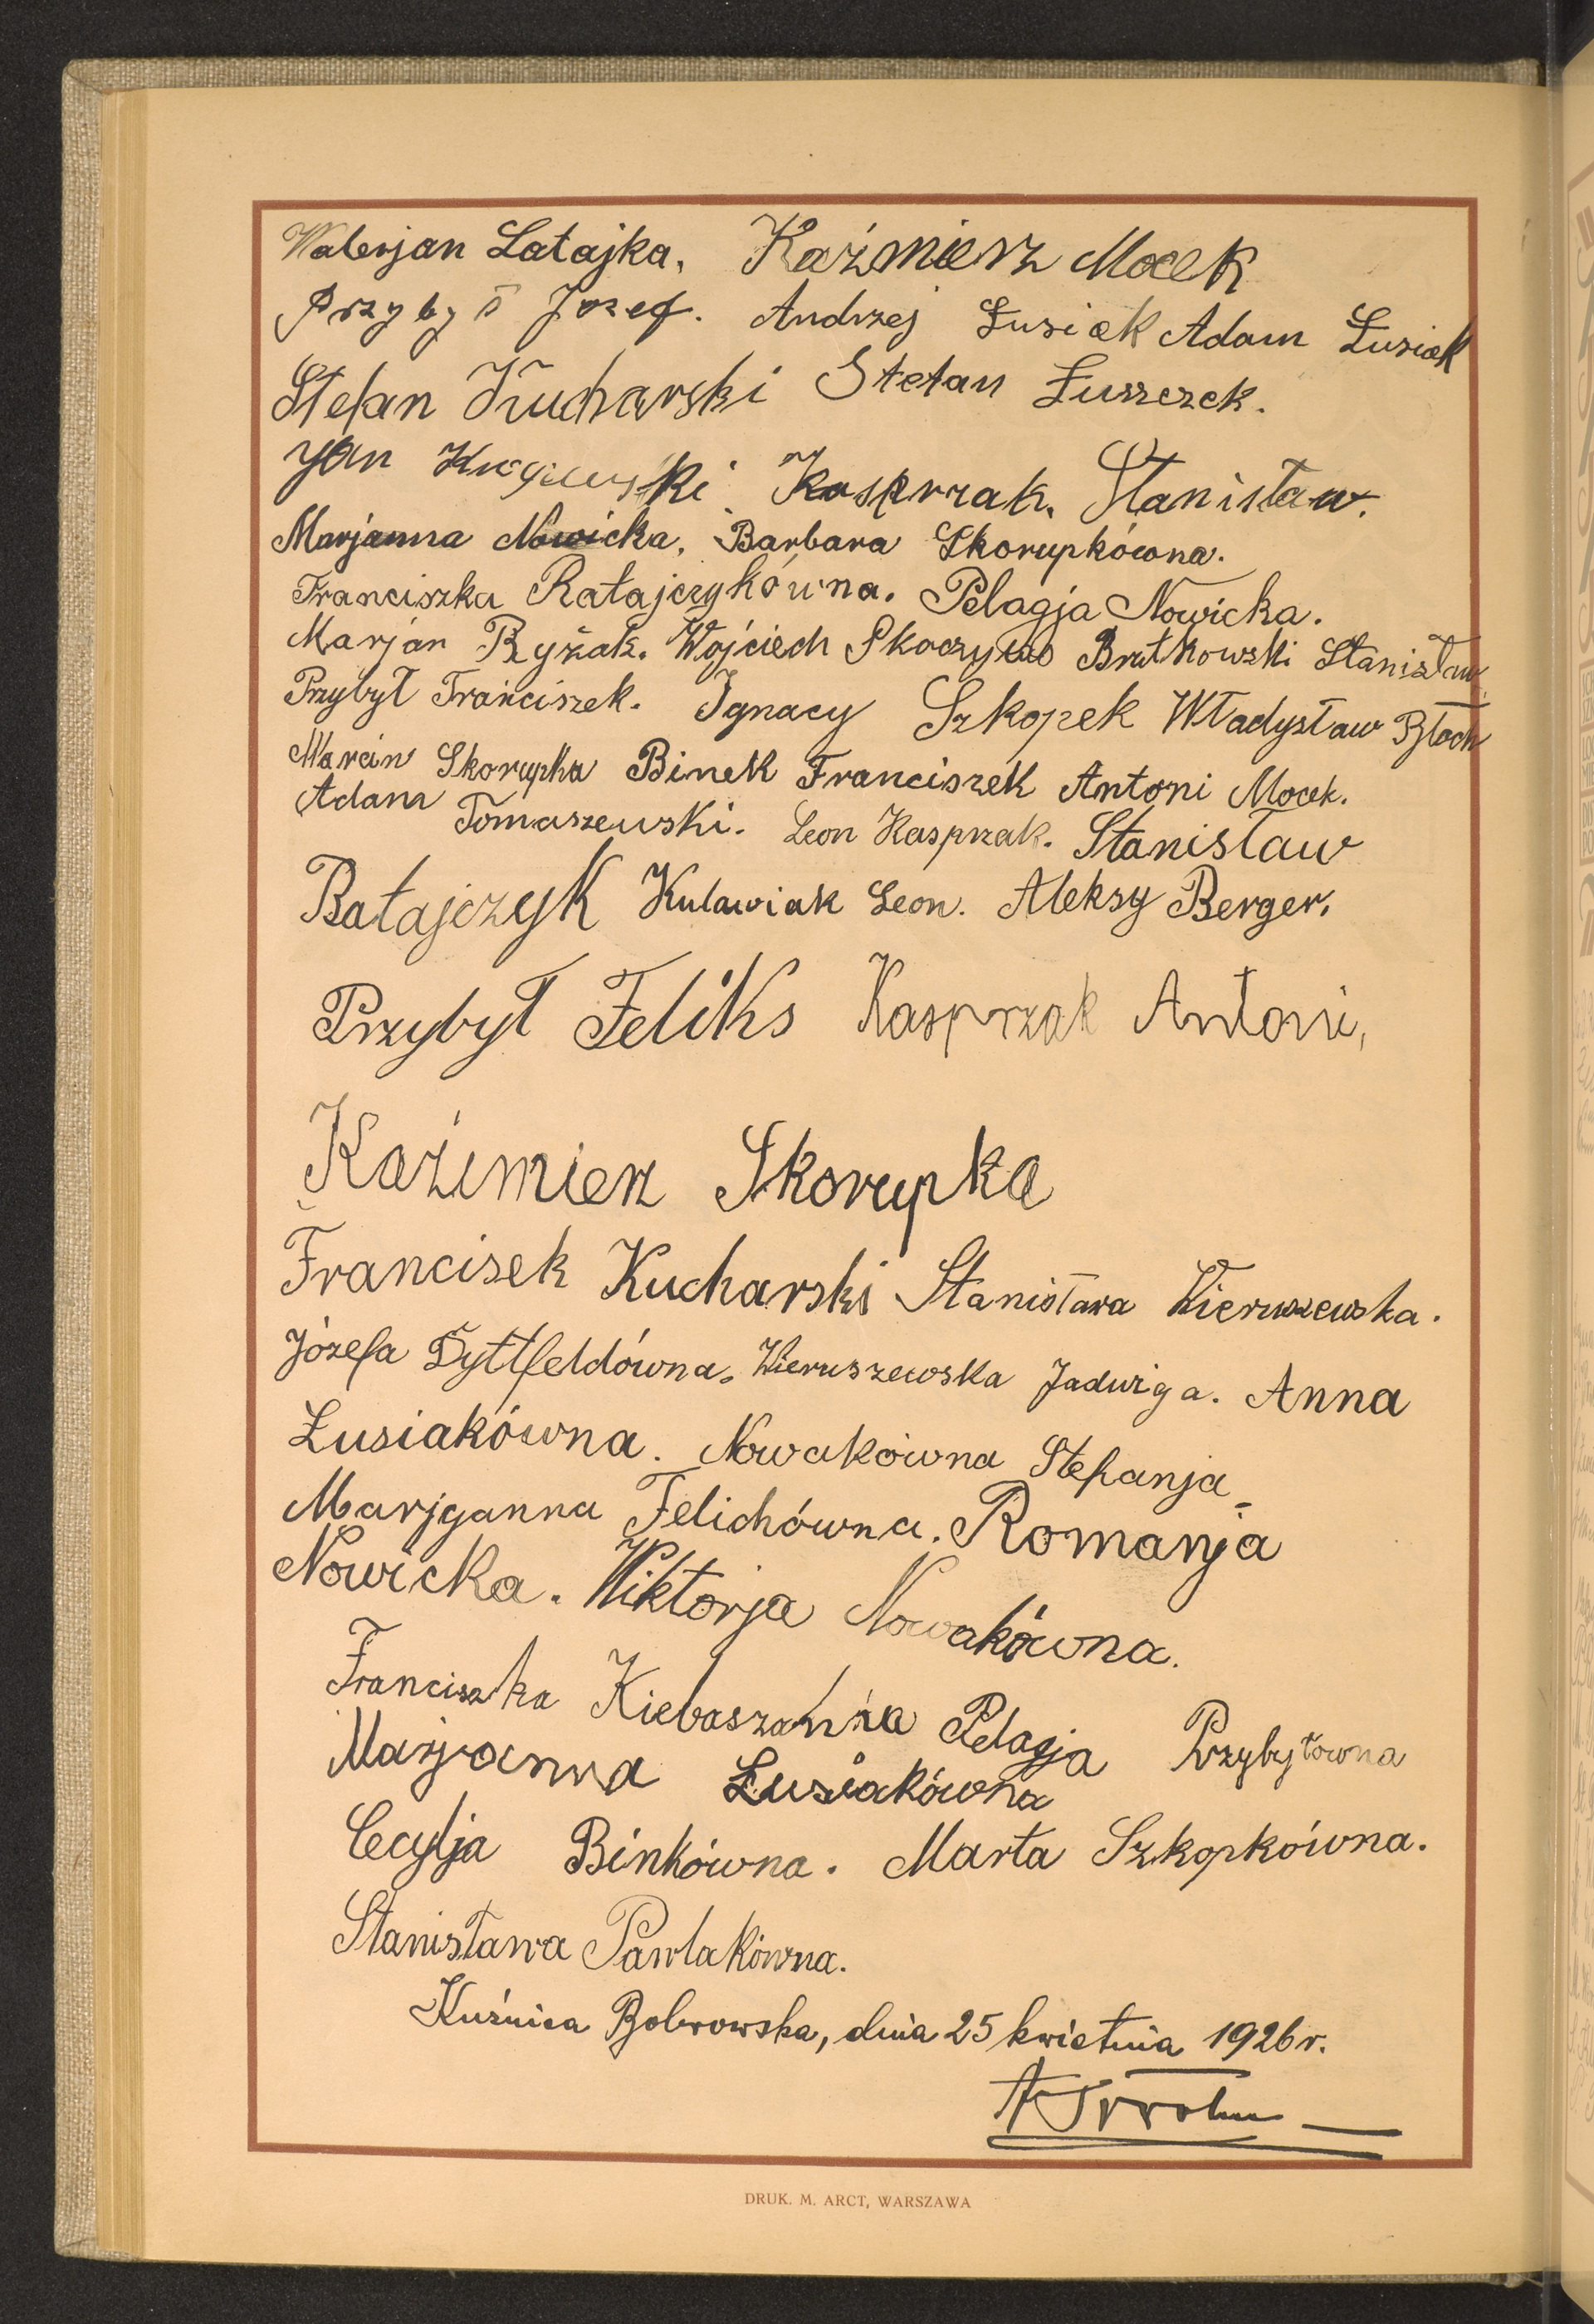 Walerjan Latajka, Kaźmierz Mocek
Przybył Józef. Andrzej Łusiak Adam Łusiak
Stefan Kucharski Stefan Łuszczek.
Jan Kasprzak, Stanisław.
Marjanna Nowicka, Barbara Skorupkówna.
Franciszka Ratajczykówna. Pelagja Nowicka.
Marjan Ryżak. Wojciech Skoczylas Brutkowski Stanisław
Przybył Franciszek. Ignacy Szkopek Władysław
Marcin Skorupka Binek Franciszek Antoni Mocek.
Adam Tomaszewski. Leon Kasprzak. Stanisław
Ratajczyk Kulawiak Leon. Aleksy Berger,
Przybył Feliks Kasprzak Antoni,
Kaźimierz Skorupka
Francisek Kucharski Stanisława Wieruszewska.
Józefa Dyttfeldówna. Wieruszewska Jadwiga. Anna
Łusiakówna. Nowakówna Stefanja
Marjganna Felichówna. Romanja
Nowicka. Wiktorja Nowakówna.
Franciszka Pelagja Przybyłowna
Marjanna Łusiakówna
Cecylja Binkówna. Marta Szkopkówna.
Stanisława Pawlakówna.
Kuźnica Bobrowska, dnia 25 kwietnia 1926 r.
DRUK. M. ARCT, WARSZAWA